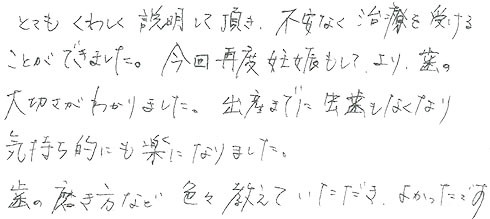 とてもくわしく説明して頂き、不安なく治療を受ける
ことができました。今回再度妊娠もして、より、歯の
大切さがわかりました。出産までに虫歯もなくなり
気持ち的にも楽になりました。
歯の磨き方など色々教えていただき、よかったです